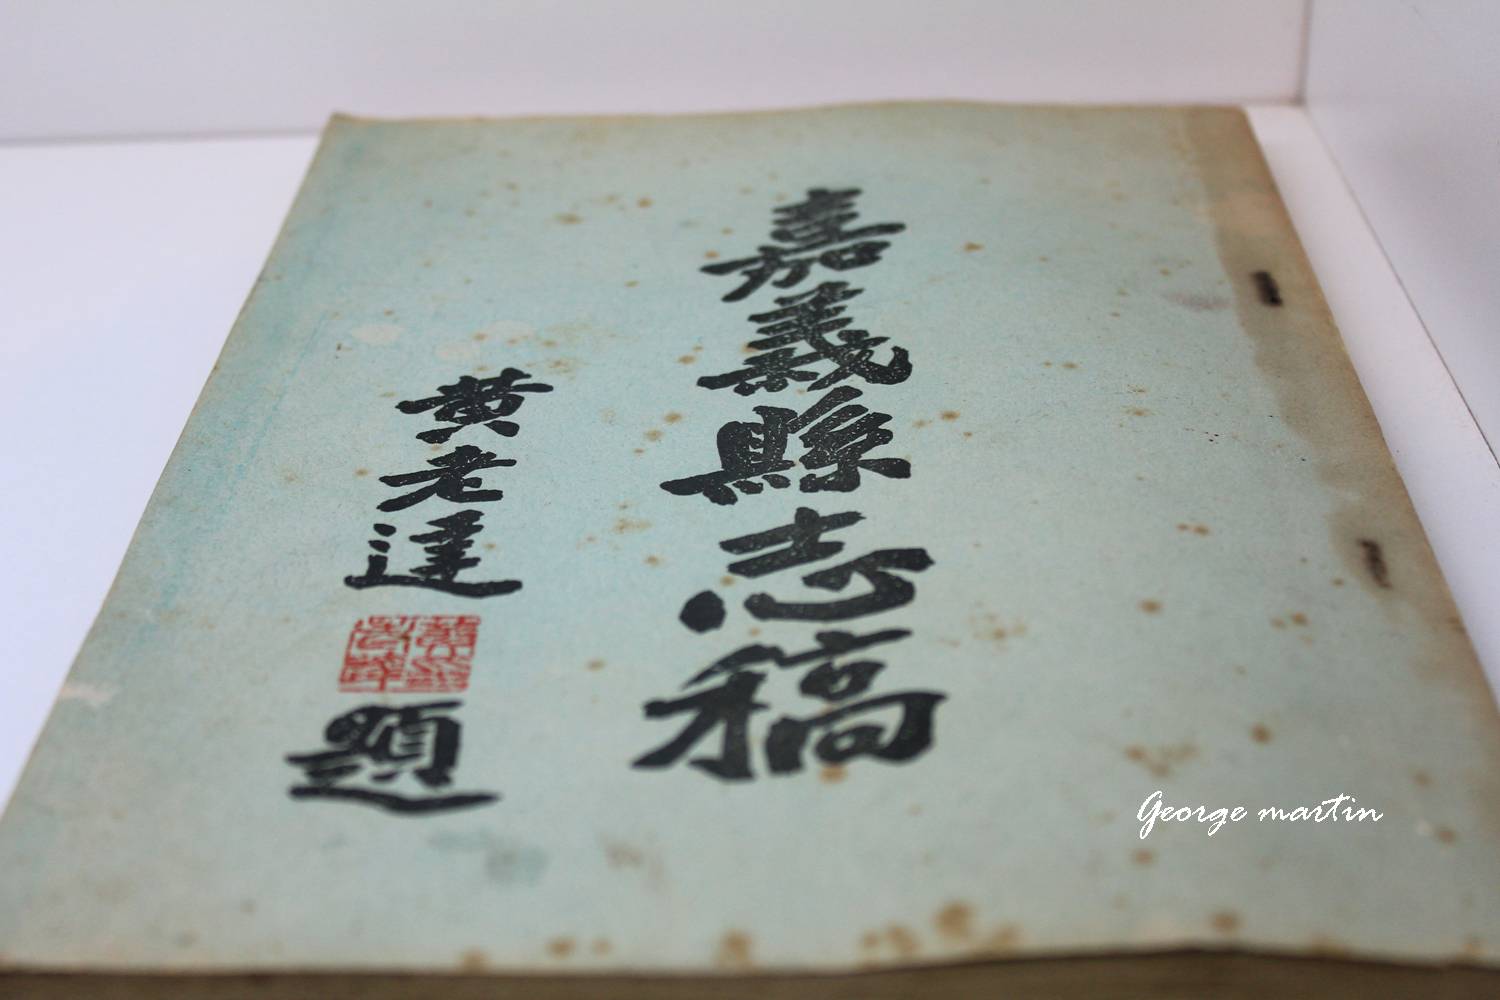 嘉義縣志稿
黃老達題
George martin